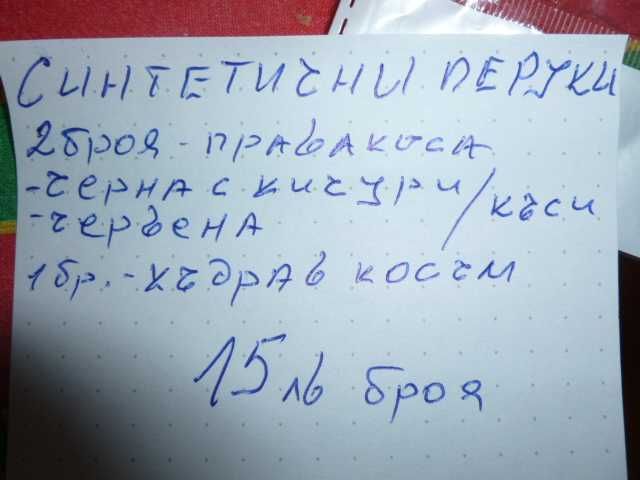 СИНТЕТИЧНИ ПЕРУКИ
2 броя - права коса
- черна с кичури / къси
- червена
1 бр. - къдрав косъм
15 лв броя